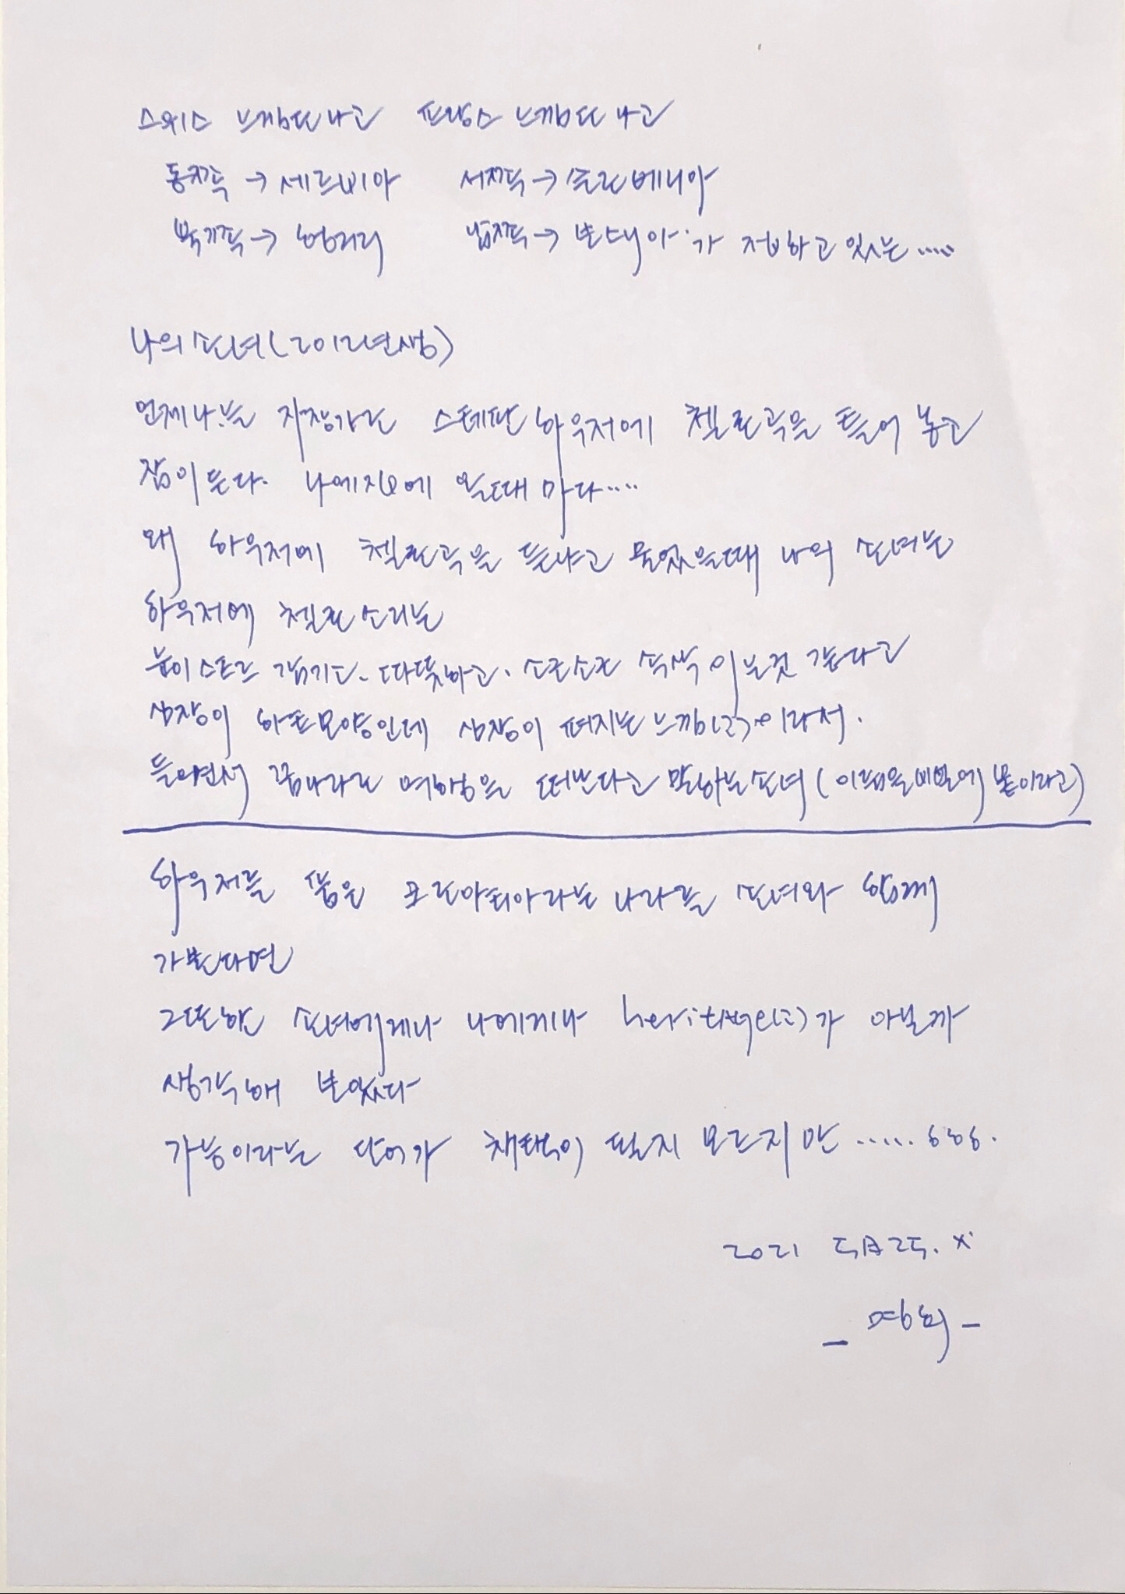 스위스 느낌또나고 프랑스 느낌또 나고
동쪽 → 세르비아 서쪽 → 슬로베니아
북쪽 → 헝가리 남쪽 → 보스니아가 접하고 있는 .....
나의 손녀(2012년생)
언제나는 자장가로 스테판 하우저에 첼로곡을 틀어 놓고
잠이 든다. 나에집에 올때 마다....
왜 하우저에 첼로곡을 듣냐고 물었을때 나의 손녀는
하우저에 첼로소리는
높이 스프르 같기도. 따뜻하고. 소곤소곤 속삭이는것 같다고
심장이 하트모양인데 심장이 퍼지는 느낌(2)이라서.
들으면서 꿈나라로 여행을 떠난다고 말하는 손녀 (이뻐
하우저를 품은 크로아티아라는 나라를 손녀와 함께
가본다면
그또한 손녀에게나 나에게나 heritage(2)가 아닐까
생각해 보았다
가능이라는 단어가 채택이 될지 모르지만 ..... ㅎㅎㅎ.
2021 5月 25. x